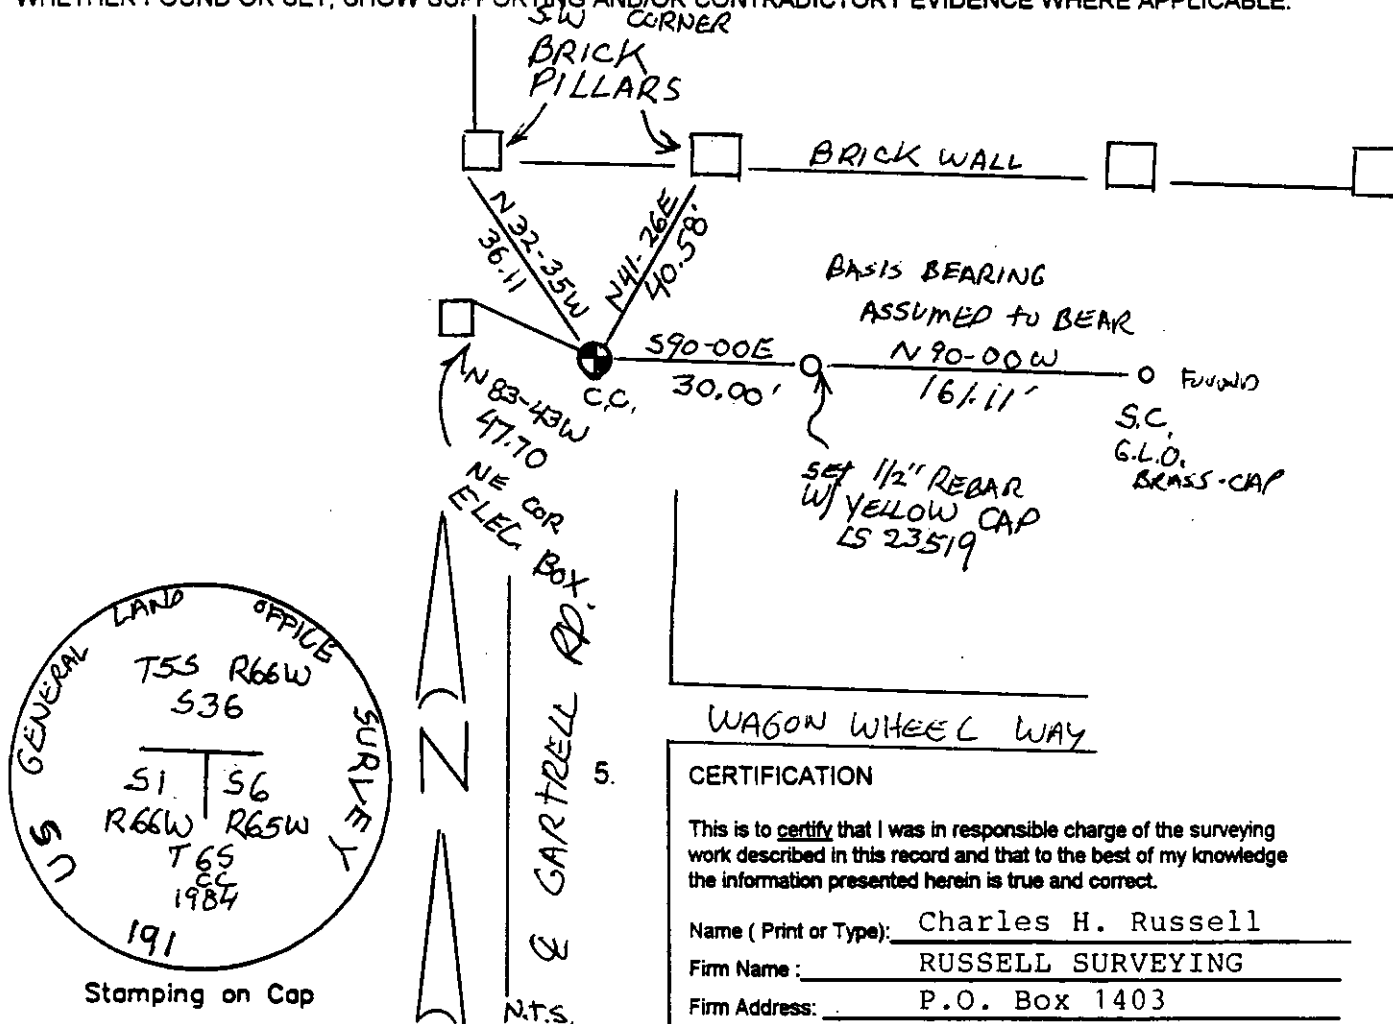 WHETHER FOUND OR SET, SHOW SUPPORTING AND/OR CONTRADICTORY EVIDENCE WHERE APPLICABLE.
SW CORNER
BRICK
PILLARS
BRICK WALL
N32-35W
36.11
N41-26E
40.58'
BASIS BEARING
ASSUMED to BEAR
S90-00E
30.00'
N 90-00W
161.11'
C.C.
FOUUND
S.C.
G.L.O.
BRASS-CAP
N 83-43W
47.70
NE COR
ELEC. BOX
SET 1/2" REBAR
W/ YELLOW CAP
LS 23519
US GENERAL LAND OFFICE SURVEY
T5S R66W
S36
S1 S6
R66W R65W
T6S
CC
1984
191
Stamping on Cap
N
GARTRELL RD.
N.T.S.
WAGON WHEEL WAY
5.
CERTIFICATION
This is to certify that I was in responsible charge of the surveying
work described in this record and that to the best of my knowledge
the information presented herein is true and correct.
Name ( Print or Type): Charles H. Russell
Firm Name : RUSSELL SURVEYING
Firm Address: P.O. Box 1403